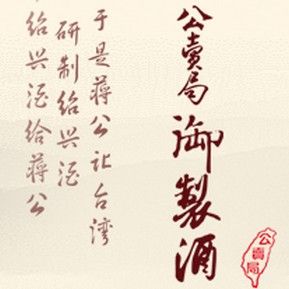 公賣局御製酒
于是蔣公让台湾
研制绍兴酒
绍兴酒给蔣公
公賣局